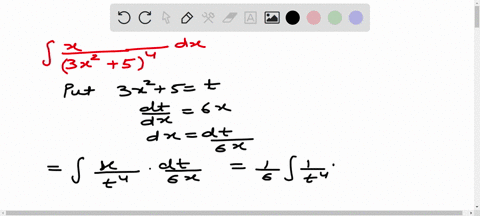 ∫ x/(3x² + 5)⁴ dx
Put 3x² + 5 = t
dt/dx = 6x
dx = dt/6x
= ∫ x/t⁴ · dt/6x = 1/6 ∫ 1/t⁴ ·